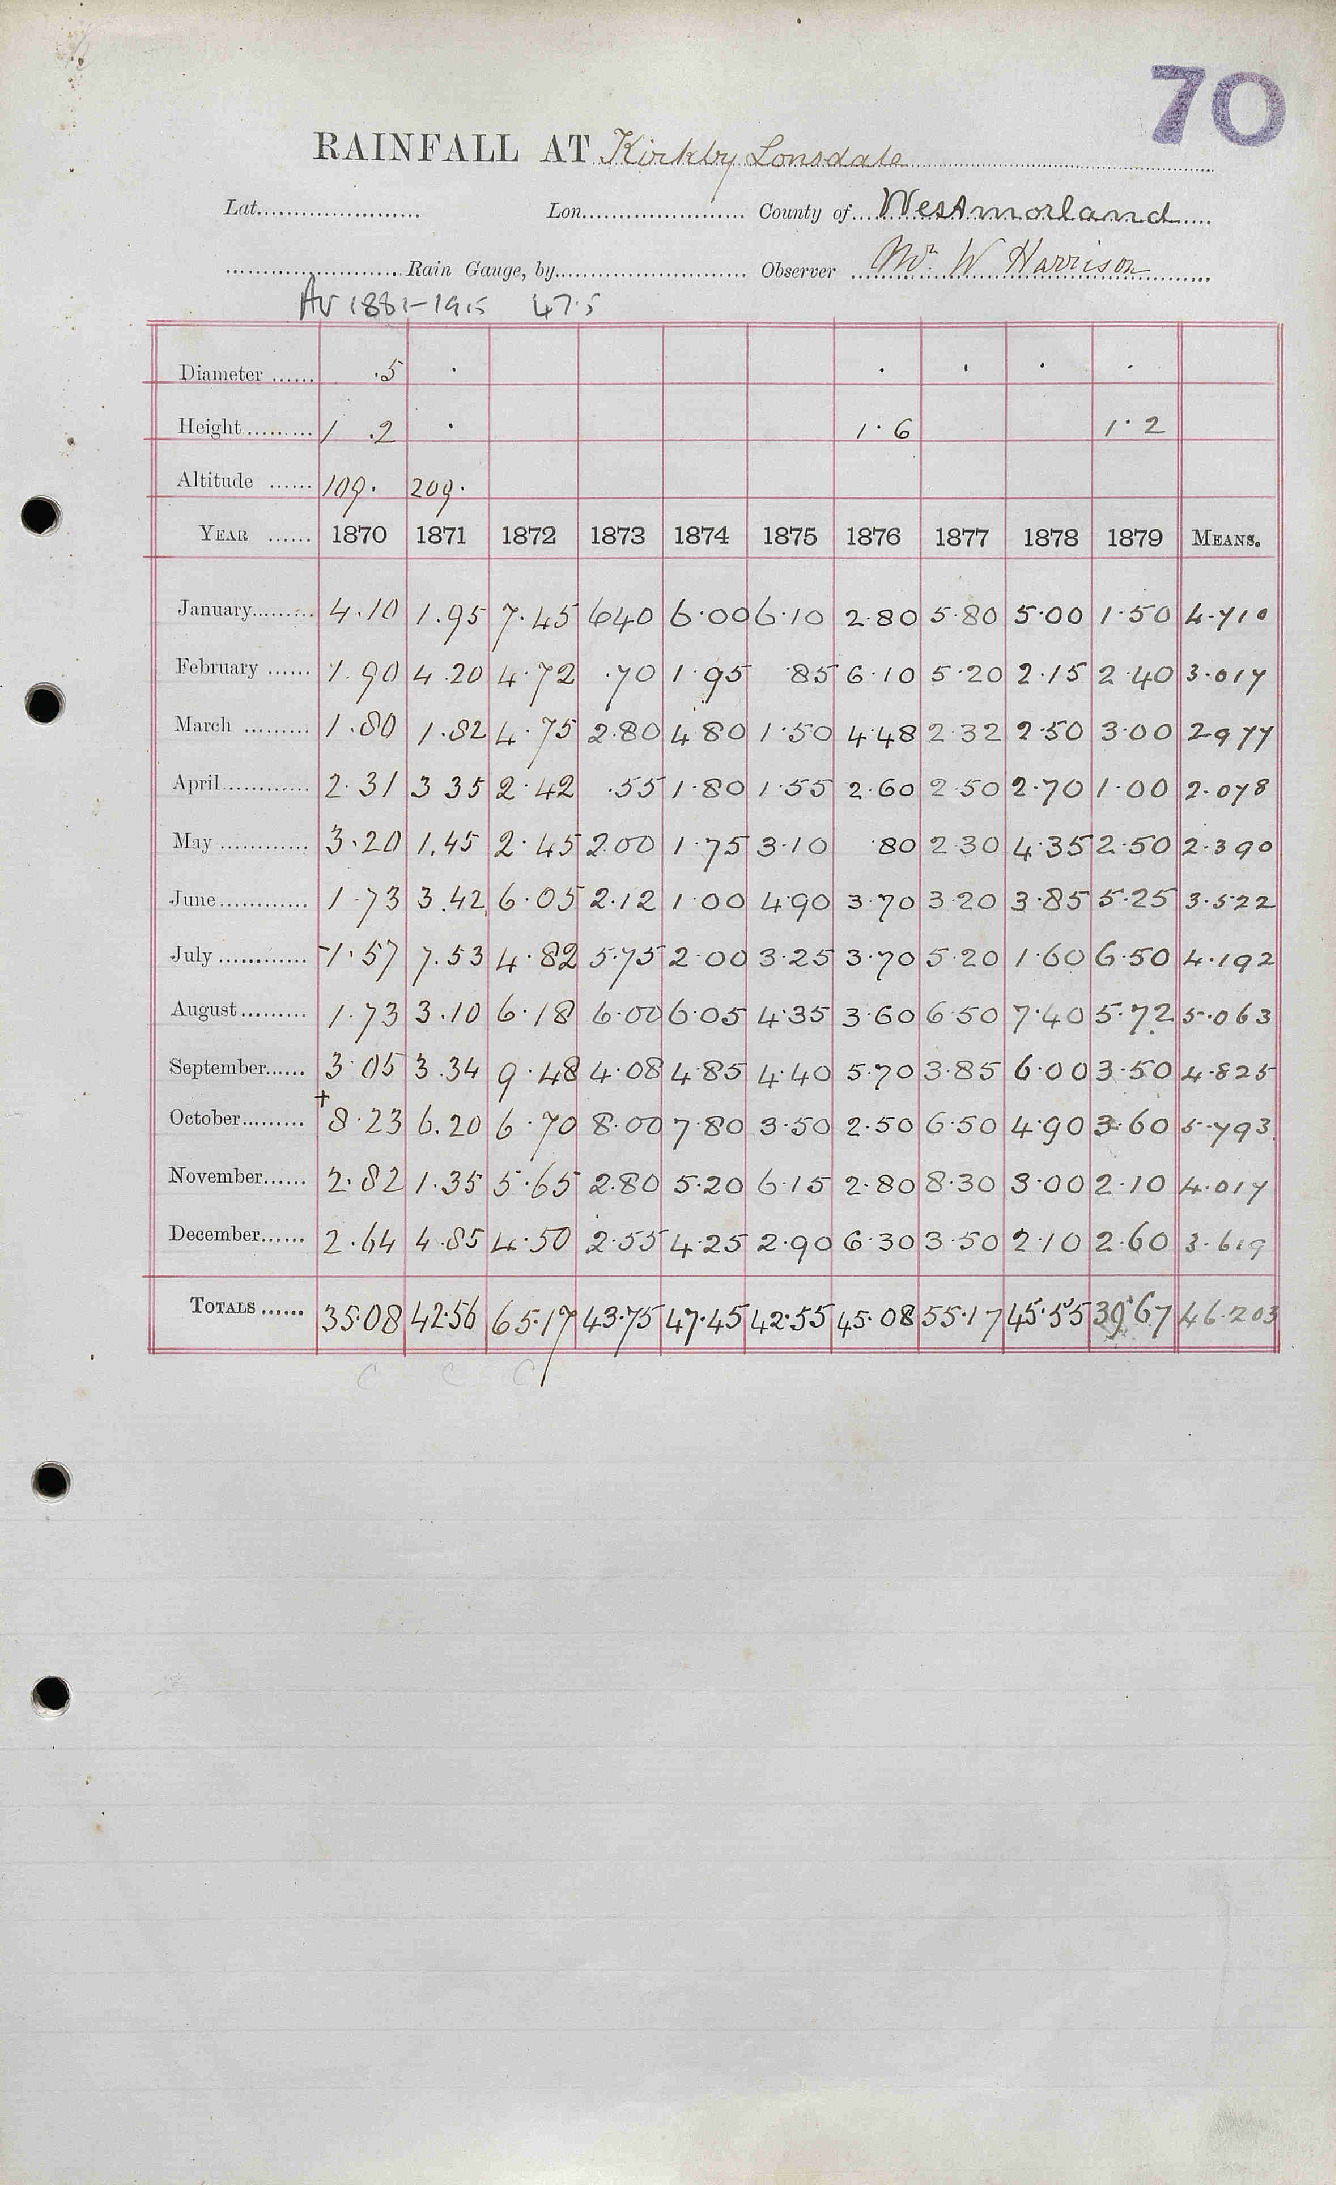 70
RAINFALL AT Kirkby Lonsdale
Lat. Lon. County of Westmorland
Rain Gauge, by Observer Mr. W Harrison
Av 1881-1915 47.5
Diameter ...... .5 . . . . .
Height ......... 1 .2 . 1.6 1.2
Altitude ...... 109. 209.
YEAR ...... 1870 1871 1872 1873 1874 1875 1876 1877 1878 1879 MEANS.
January......... 4.10 1.95 7.45 640 6.00 6.10 2.80 5.80 5.00 1.50 4.710
February ...... 1.90 4.20 4.72 .70 1.95 .85 6.10 5.20 2.15 2.40 3.017
March ......... 1.80 1.82 4.75 2.80 4.80 1.50 4.48 2.32 2.50 3.00 2.977
April............ 2.31 3 35 2.42 .55 1.80 1.55 2.60 2.50 2.70 1.00 2.078
May ............ 3.20 1.45 2.45 2.00 1.75 3.10 .80 2.30 4.35 2.50 2.390
June............ 1.73 3.42 6.05 2.12 1.00 4.90 3.70 3.20 3.85 5.25 3.522
July ............ 1.57 7.53 4.82 5.75 2.00 3.25 3.70 5.20 1.60 6.50 4.192
August......... 1.73 3.10 6.18 6.00 6.05 4.35 3.60 6.50 7.40 5.72 5.063
September...... 3.05 3.34 9.48 4.08 4.85 4.40 5.70 3.85 6.00 3.50 4.825
October......... +8.23 6.20 6.70 8.00 7.80 3.50 2.50 6.50 4.90 3.60 5.793
November...... 2.82 1.35 5.65 2.80 5.20 6.15 2.80 8.30 3.00 2.10 4.017
December...... 2.64 4.85 4.50 2.55 4.25 2.90 6.30 3.50 2.10 2.60 3.619
TOTALS ...... 35.08 42.56 65.17 43.75 47.45 42.55 45.08 55.17 45.55 39.67 46.203
c c c